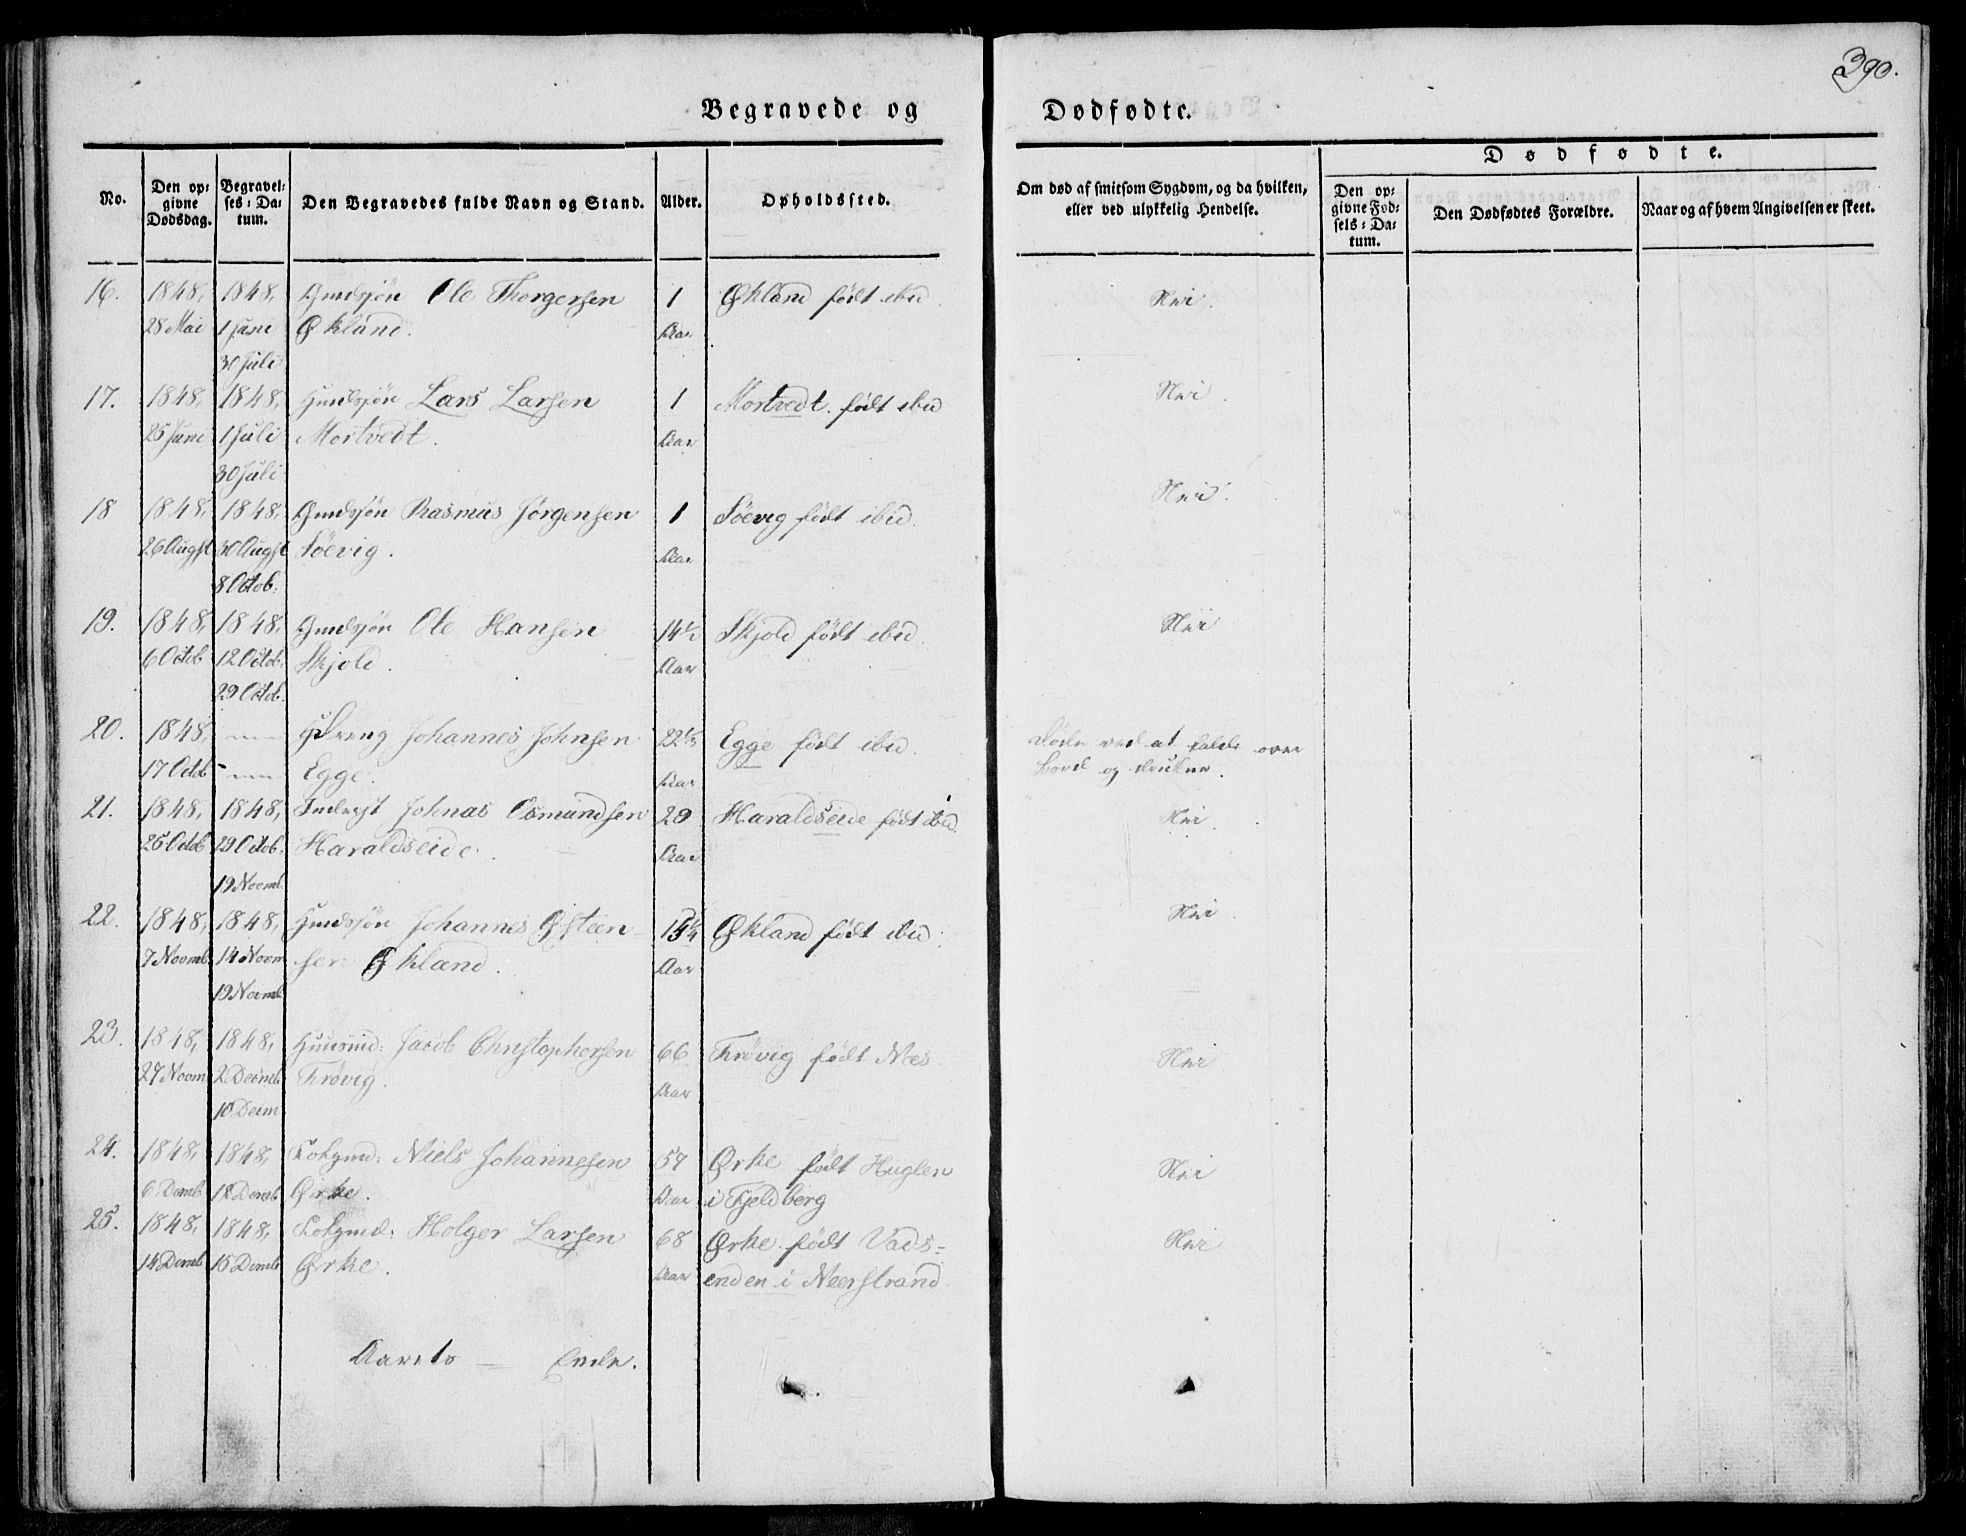 390.
Begravede og Dødfødte.
No.
Den opgivne Dødsdag.
Begravelses-Datum.
Den Begravedes fulde Navn og Stand.
Alder.
Opholdssted.
Om død af smitsom Sygdom, og da hvilken, eller ved ulykkelig Hendelse.
Dødfødte.
Den opgivne Fødsels-Datum.
Den Dødfødtes Forældre.
Naar og af hvem Angivelsen er skeet.
16. 1848, 1848, Gmdsjøn Ole Thorgersen 1 Økland født ibid. Nei.
28 Mai 1 Juni Økland. Aar
30 Juli
17. 1848, 1848, Huudsjøn Lars Larsen 1 Mortvedt. født ibid Nei.
25 Juni 1 Juli Mortvedt. Aar
30 Juli
18 1848, 1848, Gmdsjøn Rasmus Jørgensen 1 Søevig født ibid. Nei.
26 Augst 30 Augst Søevig. Aar
8 Octob.
19. 1848, 1848, Gmdsjøn Ole Hansen 14½ Skjold født ibid. Nei
6 Octob 12 Octob. Skjold. Aar
29 Octob.
20. 1848, Johannes Johnsen Egge født ibid. Døde ved at falde over
17 Octob Egge. Aar Bord og drukne.
21. 1848, 1848, Johnas Osmundsen 29 Haraldseide født ibid. Nei
25 Octob 29 Octob. Haraldseide. Aar
19 Novmb.
22. 1848, 1848, Huudsjøn Johannes Østen- Økland født ibid. Nei.
7 Novmb. 14 Novm sen Økland. Aar
19 Novmb
23. 1848, 1848, Huusmd: Jacob Christophersen 66 Trøvig født Nes. Nei
27 Novm 2 Decmb. Trøvig. Aar
10 Decm
24. 1848, 1848, Niels Johannesen 57 Ørke født Huglen Nei
6 Decmb 12 Decmb Ørke. Aar i Fjeldberg
25. 1848, 1848, Holger Larsen 68 Ørke født Vads- Nei
14 Decmb 15 Decmb Ørke. Aar enden i Neerstrand.
Aarets — Ende.